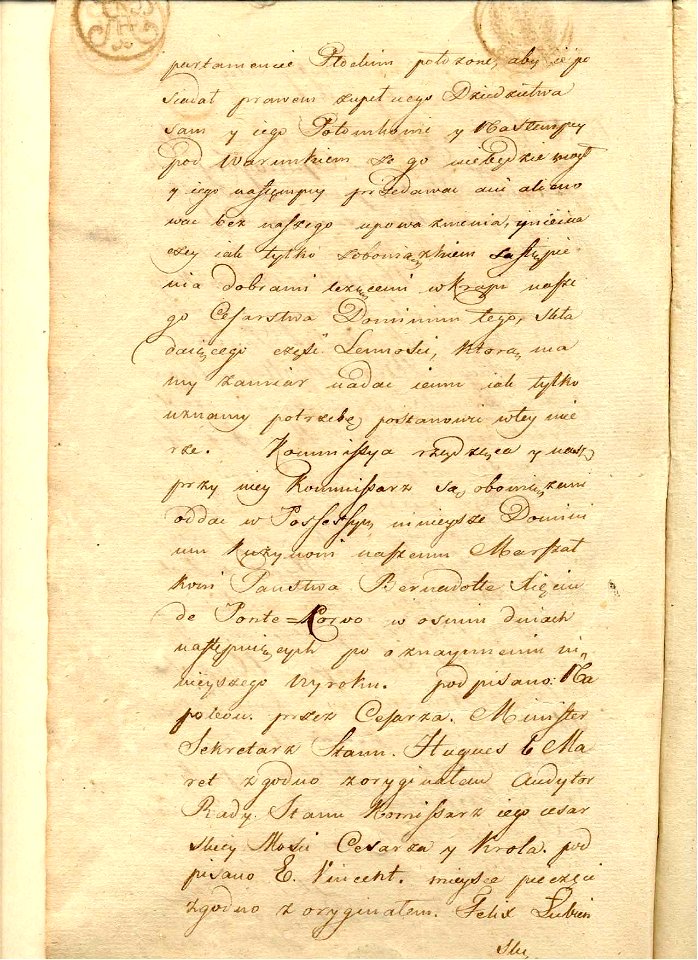 partamencie Płockim położone, aby ie po
siadał prawem zupełnego Dziedzictwa
sam y iego Potomkowie y Następcy
pod warunkiem że go niebędzie mógł
y iego następny przedawać ani alieno
wać bez naszego upoważnienia, y nieina
czey iak tylko z obowiązkiem zastąpie
nia dobrami leżącemi w kraju nasze
go Cesarstwa Dominium tego, skła
daiącego część Lenności, którą ma
my zamiar nadać iemu iak tylko
uznamy potrzebę postanowić w tey mie
rze. Kommissya rządząca y nasz
przy niey Kommissarz są obowiązani
oddać w Possessyą ninieysze Domini
um Kuzynowi naszemu Marszał
kowi Państwa Bernadotte Xięciu
de Ponte=Korwo w osmiu dniach
następuiących po oznaymieniu ni„
nieyszego wyroku. podpisano: Na
poleon. przez Cesarza. Minister
Sekretarz Stanu. Hugues B Ma
ret zgodno z oryginałem Audytor
Rady Stanu Komissarz iego cesar
skiey Mości Cesarza y Króla. pod
pisano E. Vincent. mieysce pieczęci
zgodno z oryginałem. Felix Łubień
ski